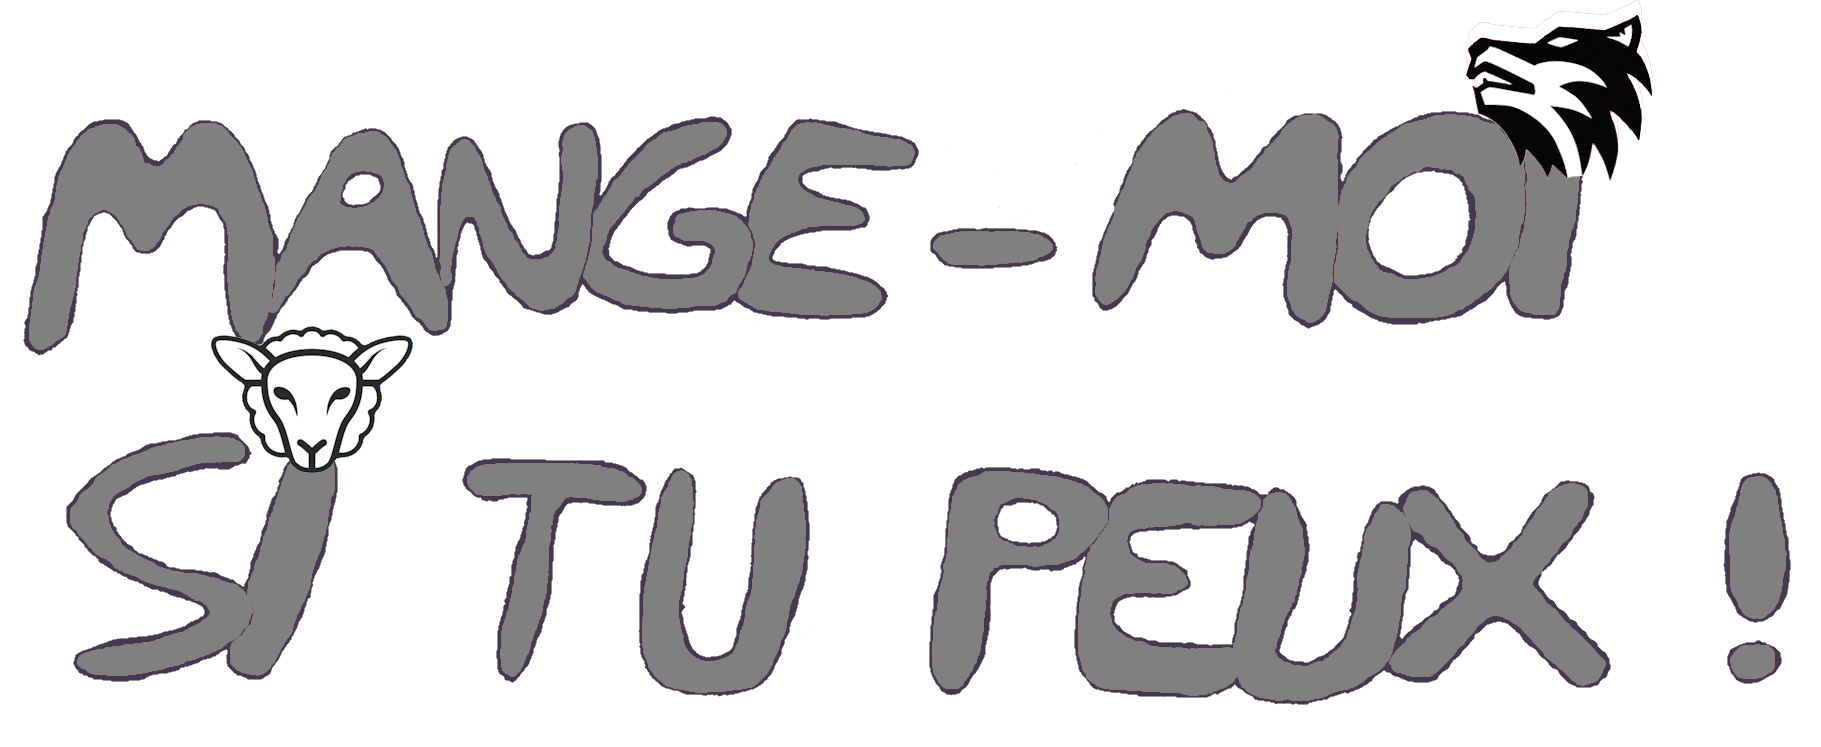 MANGE-MOI
SI TU PEUX !